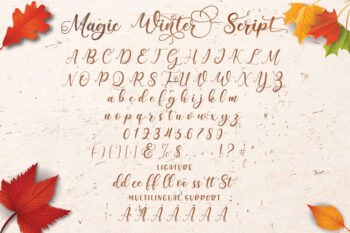 Magic Winter Script
ABCDEFGHIJKLM
NOPQRSTUVWXYZ
abcdefghijklm
nopqrstuvwxyz
0123456789
LIGATURE
dd ee ff ll oo ss tt St
MULTILINGUAL SUPPORT